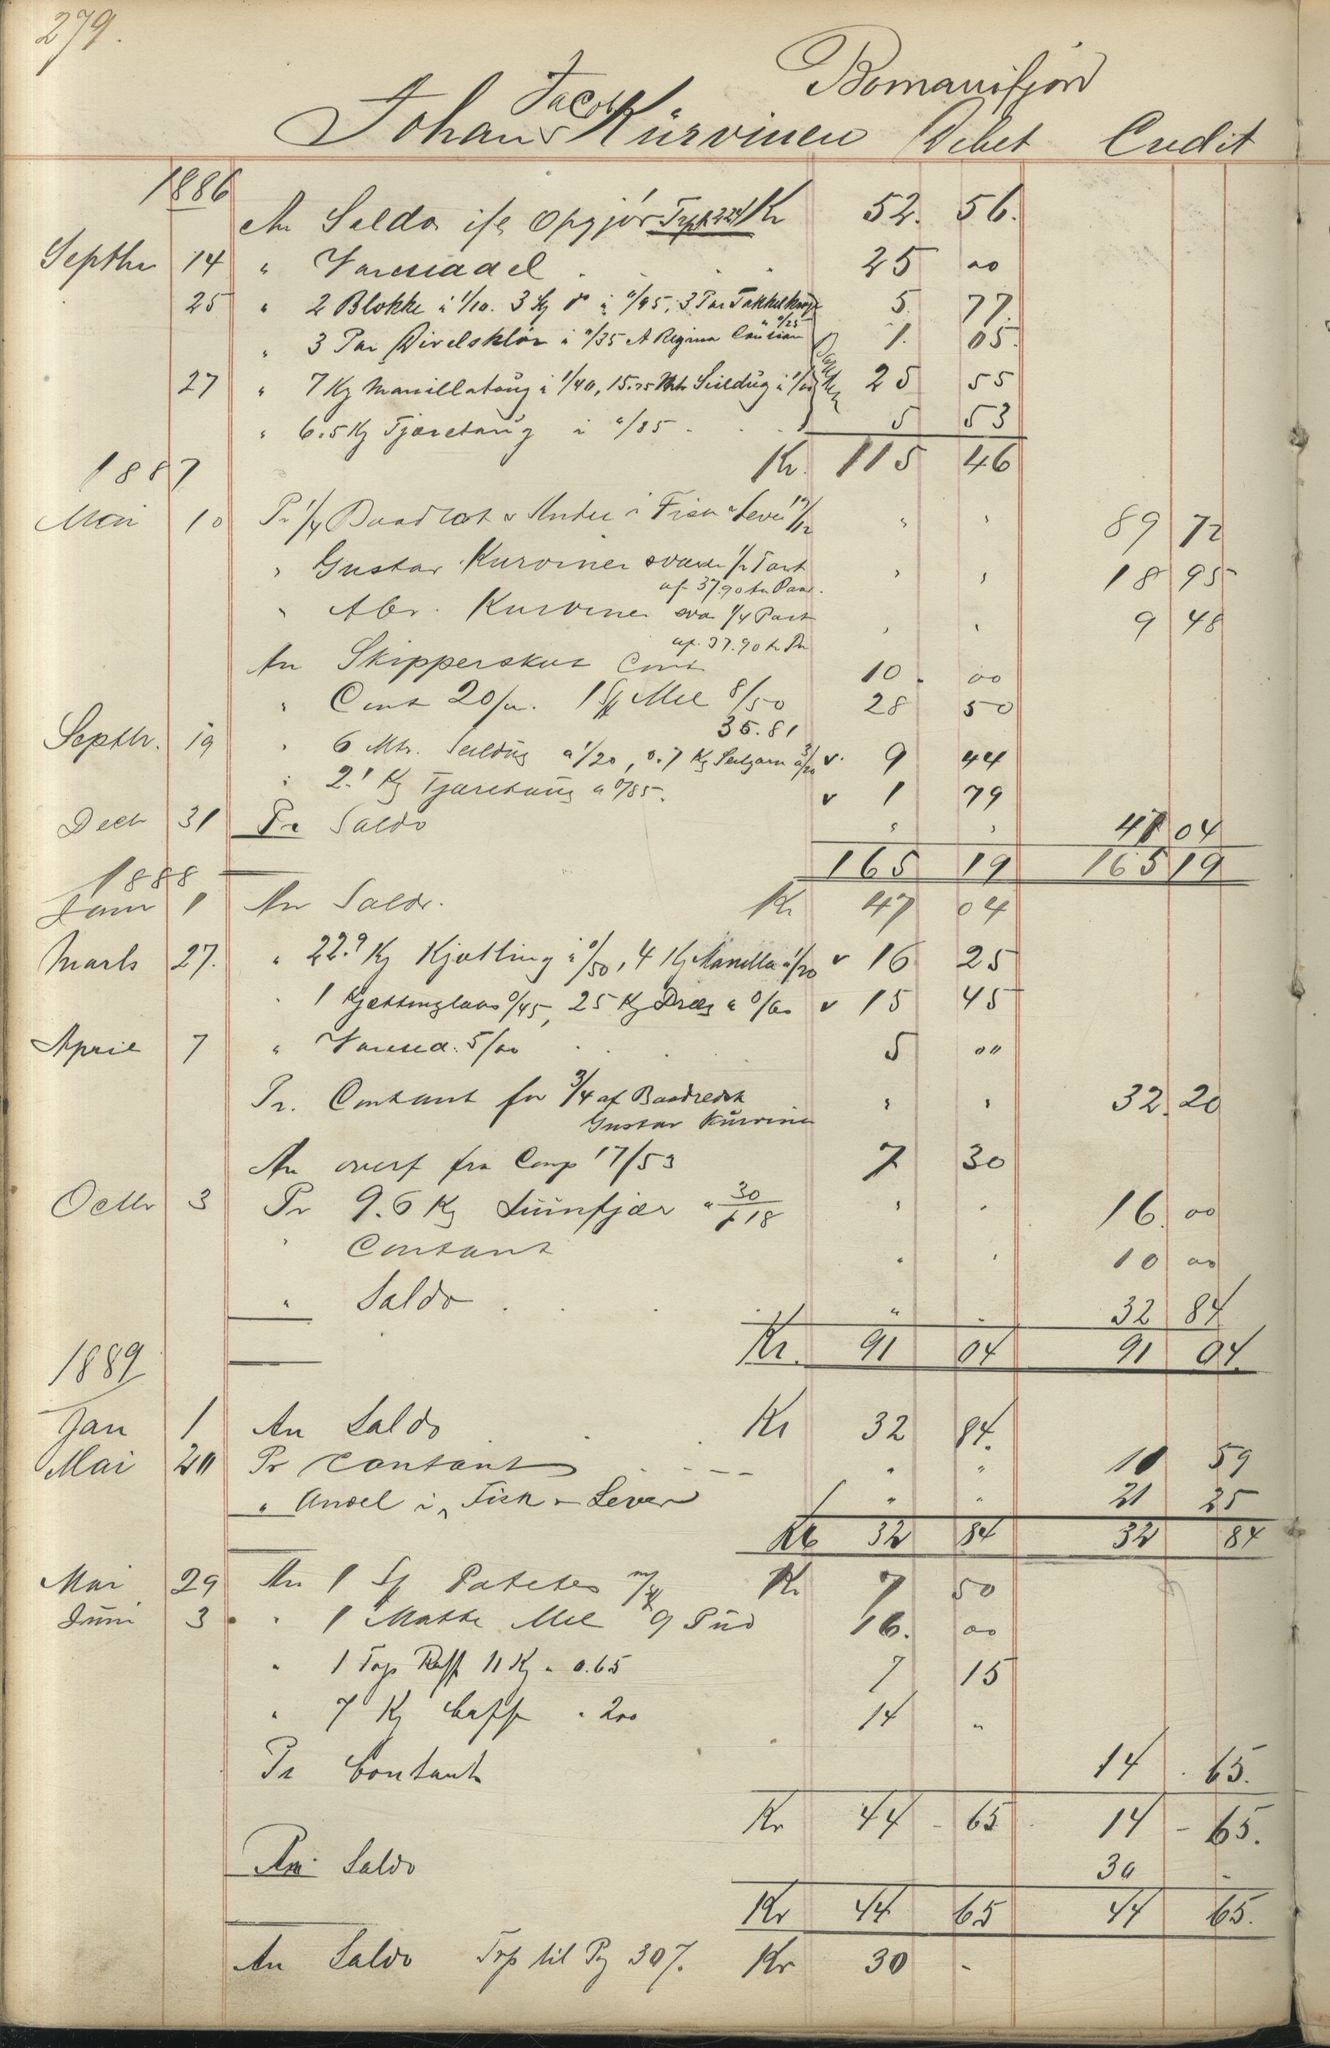 279.
Bomanifjord
Jacob
Johan Kürvinen Debet Credit
1886
An Saldo ifl. Opgjör Trp. 224 Kr 52. 56.
Septbr 14 " Vareseddel 25 00
25 " 2 Blokke à 1/10. 3 Kg do à 0/45, 3 Par 5 77.
" 3 Par à 0/35 1. 05.
27 " 7 Kg Manillatoug à 1/40, 15.75 Mtr Seildug à 25 55
" 6.5 Kg Tjæretoug à 0/85 5 53
Kr. 115 46
1887
Mai 10 Pr 1/4 Andel i Fisk & Lever " " 89 72
" Gustav Kurvinen 1/2 Part " " 18 95
af 37.90
" Abr. Kurvinen 1/4 Part " " 9 48
af 37.90
An Skipperskat Cont 10. 00
" Cont 20/00. 1 Sk Mel 8/50 28 50
35.81
Septbr. 19 " 6 Mtr. Seildug a 1/20, 0.7 Kg Seilgarn a 3/20 v. 9 44
" 2.1 Kg Tjæretoug a 0/85. v 1 79
Decbr 31 Pr Saldo " " 47 04
165 19 165 19
1888
Janr 1 An Saldo. Kr 47 04
Marts 27. " 22.9 Kg Kjetting à 0/50, 4 Kg Manilla à 1/20 v 16 25
" 1 Kjettinglaas 0/45, 25 Kg Dræg a 0/60 v 15 45
April 7 " Varesed. 5/00 5 00
Pr. Contant for 3/4 af " " 32. 20
Gustav Kürvinen
An overf fra Comp 17/53 7 30
Octbr 3 Pr 9.6 Kg " 30/ 18 " " 16. 00
" Contant " " 10 00
" Saldo " " 32 84
Kr. 91 04 91 04.
1889
Jan 1 An Saldo Kr 32 84.
Mai 20 Pr Contant " " 11 59
" Andel i Fisk & Lever " " 21 25
Kr 32 84 32 84
Mai 29 An 1 Sk Poteter Kr 7 50
Juni 3 " 1 Matte Mel 9 Pud 16. 00
" 1 Top Raff 11 Kg " 0.65 7 15
" 7 Kg Caffe " 2.00 14 "
Pr Contant 14 . 65.
Kr 44 - 65 14 - 65.
Saldo 30 -
Kr 44 65 44 65.
An Saldo Trp til Pg 307. Kr 30 -